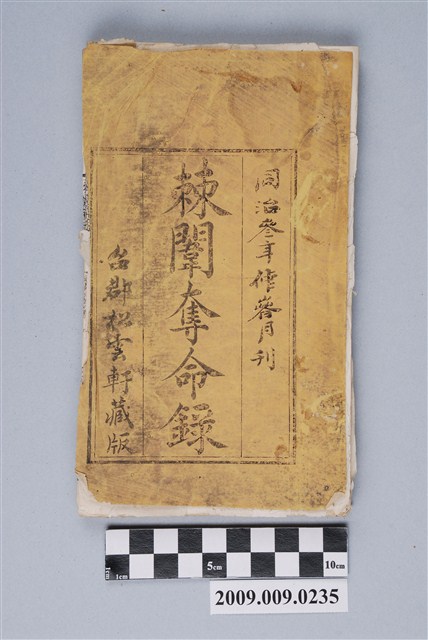 同治叁年備蓉月刊
棘闈奪命録
台郡松雲軒藏版
1cm 5cm 10cm
2009.009.0235